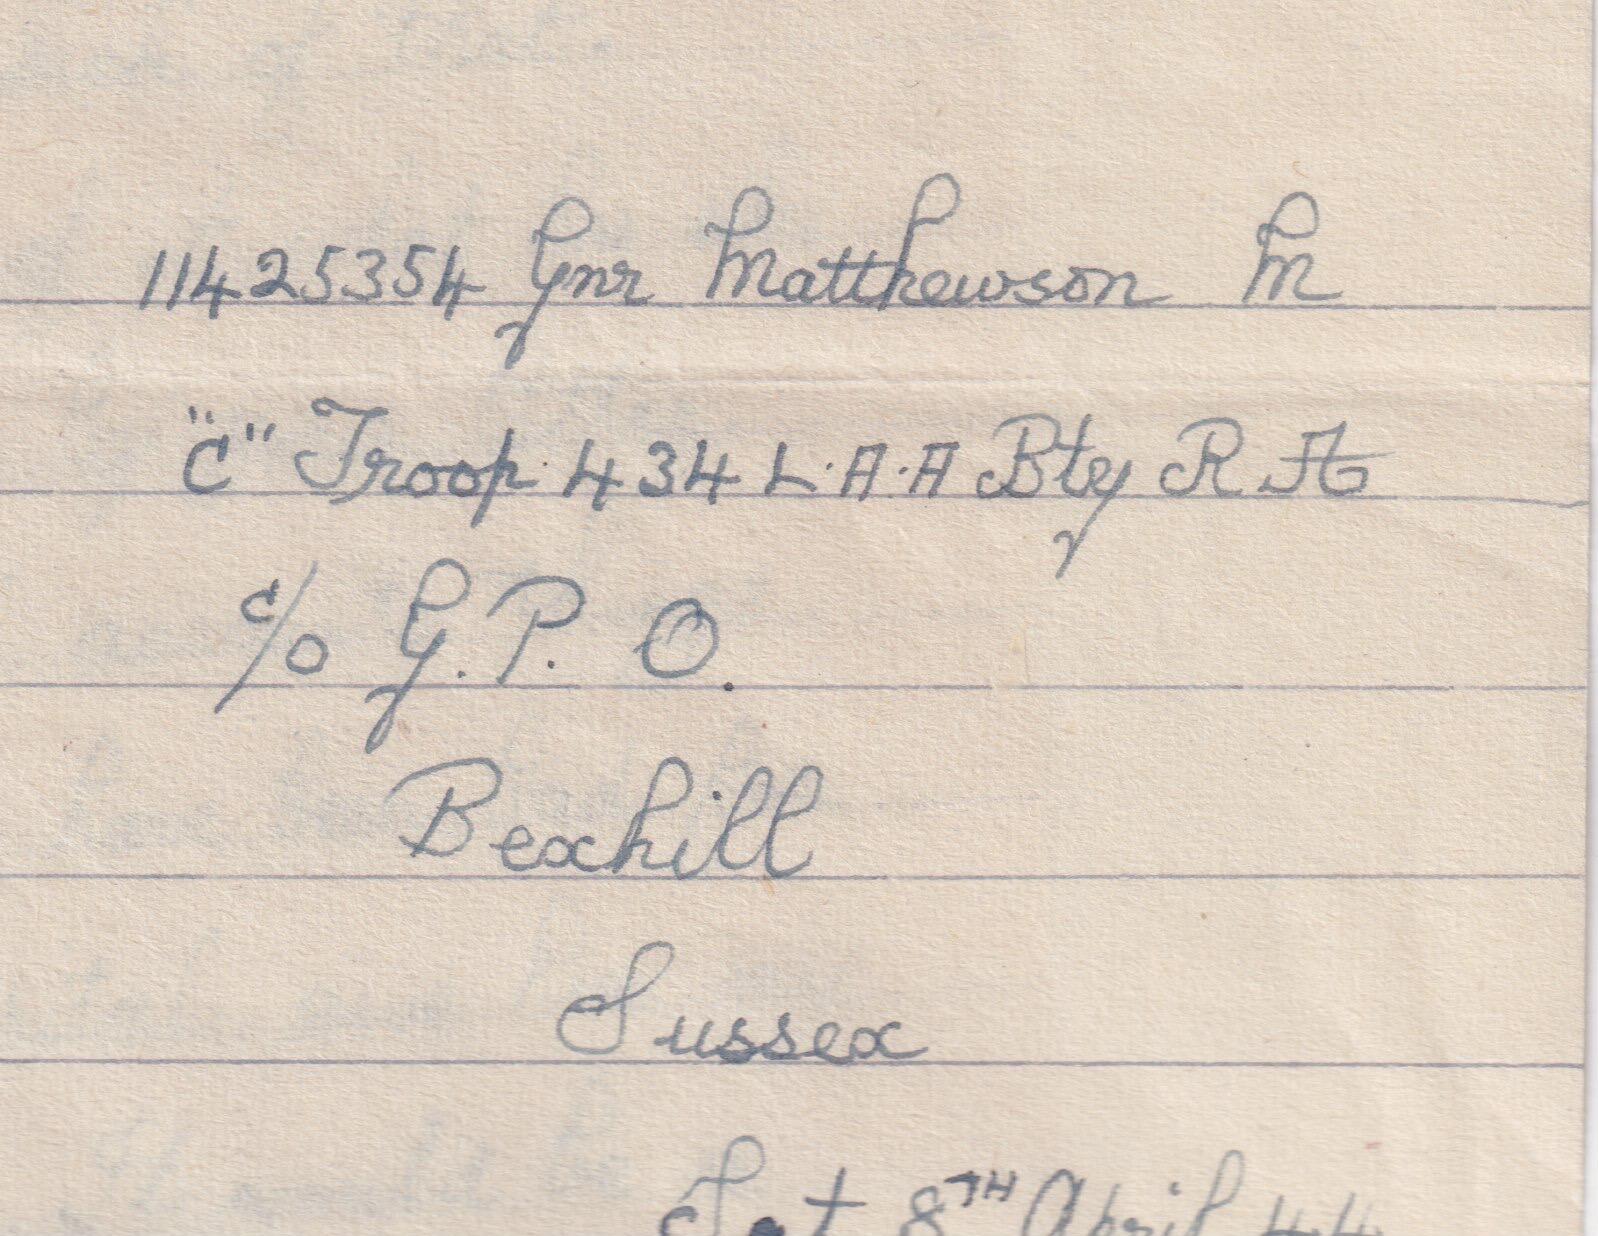 11425354 Gnr Matthewson M
"C" Troop. 434 L.A.A Bty R A
c/o G.P. O.
Bexhill
Sussex
Sat 8TH April 44